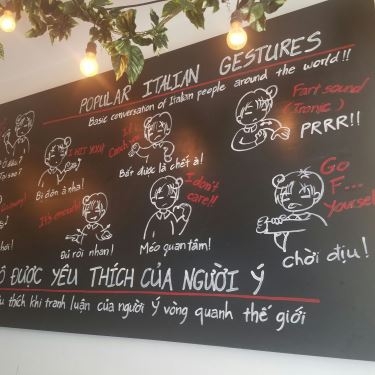 POPULAR ITALIAN GESTURES
Basic conversation of Italian people around the world!!
Fart sound
(Ironic)
PRRR!!
Bị đòn à nha!
Bắn được là chết à!
I don't
care!!
Go
F...
Yourself
It's enough!
Đủ rồi nhan!
Méo quan tâm!
chời địu!
ĐƯỢC YÊU THÍCH CỦA NGƯỜI Ý
thích khi tranh luận của người Ý vòng quanh thế giới